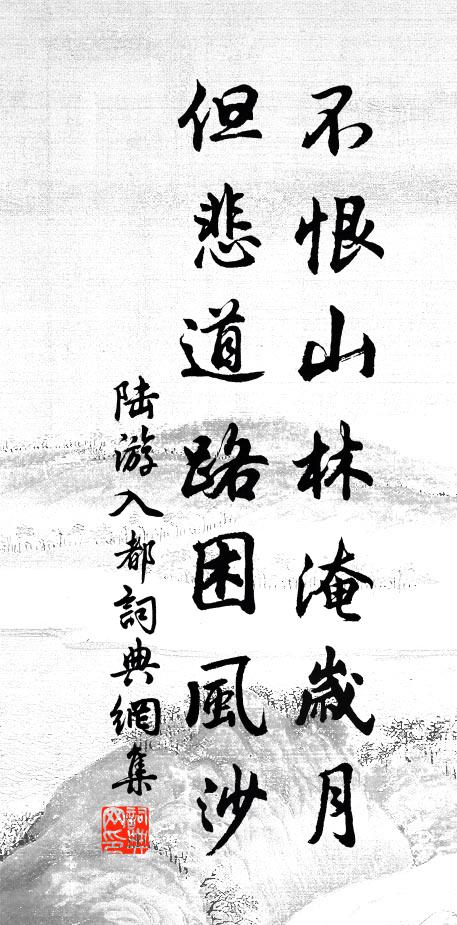 不恨山林淹歲月
但悲道路困風沙
陆游入都詞典網集